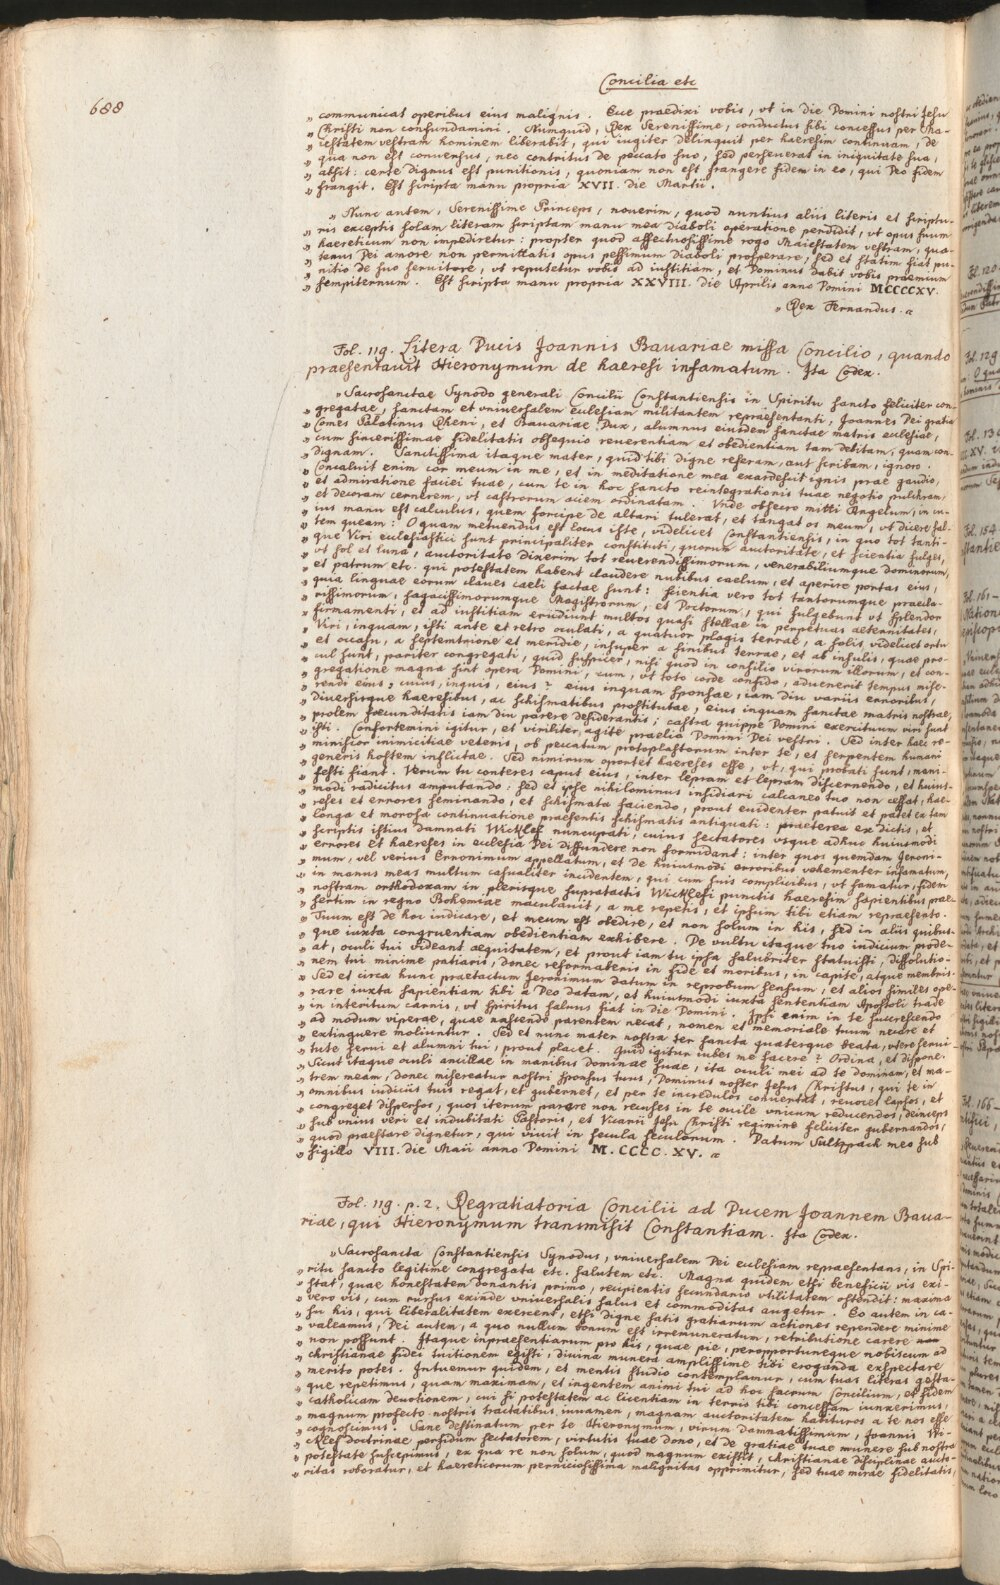 Concilia etc
688
„ communicat operibus eius malignis. Ecce praedixi vobis, vt in die Domini nostri Jesu
„ Christi non confundamini. Numquid, Rex Serenissime, conductus sibi concessus per Ma-
„ iestatem vestram hominem liberabit, qui iugiter delinquit per haeresim continuam, de
„ qua non est conuersus, nec contritus de peccato suo, sed perseuerat in iniquitate sua,
„ absit: certe dignus est punitionis, quoniam non est frangere fidem in eo, qui Deo fidem
„ frangit. Est scripta manu propria XVII. die Martii.
„ Nunc autem, Serenissime Princeps, nouerim, quod nuntius aliis literis et scriptu-
„ ris exceptis solam literam scriptam manu mea diaboli operatione perdidit, vt opus suum
„ haereticum non impediretur: propter quod affectuosissime rogo Maiestatem vestram, qua-
„ tenus Dei amore non permittatis opus pessimum diaboli prosperare, sed et statim fiat pu-
„ nitio de suo seruitore, vt reputetur vobis ad iustitiam, et Dominus dabit vobis praemium
„ sempiternum. Est scripta manu propria XXVIII. die Aprilis anno Domini MCCCCXV.
„ Rex Fernandus. “
Fol. 119. Litera Ducis Joannis Bauariae missa Concilio, quando
praesentauit Hieronymum de haeresi infamatum. Ita Codex.
„ Sacrosanctae Synodo generali Concilii Constantiensis in Spiritu sancto feliciter con-
„ gregatae, sanctam et vniuersalem ecclesiam militantem repraesentanti, Joannes Dei gratia
„ Comes Palatinus Rheni, et Bauariae Dux, alumnus eiusdem sanctae matris ecclesiae,
„ cum sincerissimae fidelitatis obsequio reuerentiam et obedientiam tam debitam, quam con-
„ dignam. Sanctissima itaque mater, quid tibi digne referam, aut scribam, ignoro.
„ Concaluit enim cor meum in me, et in meditatione mea exardescit ignis prae gaudio,
„ et admiratione faciei tuae, cum te in hoc sancto reintegrationis tuae negotio pulchram,
„ et decoram cernerem, vt castrorum aciem ordinatam. Vnde obsecro mitti Angelum, in cu-
„ ius manu est calculus, quem forcipe de altari tulerat, et tangat os meum, vt dicere sal-
„ tem queam: O quam metuendus est locus iste, videlicet Constantiensis, in quo tot tanti-
„ que Viri ecclesiastici sunt principaliter constituti, quorum auctoritate, et scientia fulget,
„ vt sol et luna, auctoritate dinerim tot reuerendissimorum, venerabiliumque dominorum,
„ et patrum etc. qui potestatem habent claudere nubibus caelum, et aperire portas eius,
„ quia linguae eorum claues caeli factae sunt: scientia vero tot tantorumque praecla-
„ rissimorum, sagacissimorumque Magistrorum, et Doctorum, qui fulgebunt vt splendor
„ firmamenti, et ad iustitiam erudiunt multos quasi stellae in perpetuas aeternitates,
„ Viri, inquam, isti ante et retro oculati, a quatuor plagis terrae, a solis videlicet ortu
„ et occasu, a septemtrione et meridie, insuper a finibus terrae, et ab insulis, quae pro-
„ cul sunt, pariter congregati, quid suspicer, nisi quod in consilio virorum illorum, et con-
„ gregatione magna sint opera Domini, cum, vt toto corde confido, aduenerit tempus mise-
„ rendi eius, cuius, inquis, eius? eius inquam sponsae, iam diu variis erroribus,
„ diuersisque haeresibus, ac schismatibus prostitutae, eius inquam sanctae matris nostrae,
„ prolem foecunditatis iam diu parere desiderantis; castra quippe Domini exercituum viri sunt
„ isti. Confortemini igitur, et viriliter agite praelia Domini Dei vestri. Sed inter haec re-
„ miniscor inimicitiae veteris, ob peccatum protoplastorum inter te, et serpentem humani
„ generis hostem inflictae. Sed nimirum oportet haereses esse, vt, qui probati sunt, mani-
„ festi fiant. Verum tu conteres caput eius, inter lepram et lepram discernendo, et huius-
„ modi radicitus amputando: sed et ipse nihilominus insidiari calcaneo tuo non cessat, hae-
„ reses et errores seminando, et schismata faciendo, prout euidenter patuit et patet ea tam
„ longa et morosa continuatione praesentis schismatis antiquati: praeterea ex dictis, et
„ scriptis istius damnati Wicklef nuncupati, cuius sectatores vsque adhuc huiusmodi
„ errores et haereses in ecclesia Dei diffundere non formidant: inter quos quemdam Jeroni-
„ mum, vel verius Erronimum appellatum, et de huiusmodi erroribus vehementer infamatum,
„ in manus meas multum casualiter incidentem, qui cum suis complicibus, vt famatur, fidem
„ nostram orthodoxam in plerisque supratactis Wicklefi punctis haeresim sapientibus prae-
„ sertim in regno Bohemiae maculauit, a me repetis, et ipsum tibi etiam repraesento.
„ Tuum est de hoc indicare, et meum est obedire, et non solum in his, sed in aliis quibus-
„ que iuxta congruentiam obedientiam exhibere. De vultu itaque tuo iudicium prode-
„ at, oculi tui videant aequitatem, et prout iam tu ipsa salubriter statuisti, dissolutio-
„ nem tui minime patiaris, donec reformaberis in fide et moribus, in capite, atque membris.
„ Sed et circa hunc praetactum Jeronimum datum in reprobum sensum, et alios similes ope-
„ rare iuxta sapientiam tibi a Deo datam, et huiusmodi iuxta sententiam Apostoli trade
„ in interitum carnis, vt spiritus saluus fiat in die Domini. Ipsi enim in te succrescendo
„ ad modum viperae, quae nascendo parentem necat, nomen et memoriale tuum necare et
„ extinguere moliuntur. Sed et nunc mater nostra ter sancta quaterque beata, vtere serui-
„ tute serui et alumni tui, prout placet. Quid igitur iubes me facere? Ordina, et dispone.
„ Sicut itaque oculi ancillae in manibus dominae suae, ita oculi mei ad te dominam, et ma-
„ trem meam, donec misereatur nostri sponsus tuus, Dominus noster Jesus Christus, qui te in
„ omnibus iudiciis tuis regat, et gubernet, et per te incredulos conuertat, reuocet lapsos, et
„ congreget dispersos, quos iterum parere non recuses in te ouile vnicum reducendos, deinceps
„ sub vnius veri et indubitati Pastoris, et Vicarii Jesu Christi regimine feliciter gubernandos,
„ quod praestare dignetur, qui viuit in secula seculorum. Datum Sultzpach meo sub
„ sigillo VIII. die Maii anno Domini M.CCCC.XV. “
Fol. 119. p. 2. Regratiatoria Concilii ad Ducem Joannem Baua-
riae, qui Hieronymum transmisit Constantiam. Ita Codex.
„ Sacrosancta Constantiensis Synodus, vniuersalem Dei ecclesiam repraesentans, in Spi-
„ ritu sancto legitime congregata etc. salutem etc. Magna quidem etsi beneficii vis exi-
„ stat, quae honestatem donantis primo, recipientis secundario vtilitatem ostendit: maxima
„ vero vis, cum rursus exinde vniuersalis salus et commoditas augetur. Eo autem in ca-
„ su his, qui liberalitatem exercent, etsi digne satis gratiarum actiones rependere minime
„ valeamus, Dei autem, a quo nullum bonum est irremuneratum, retributione carere
„ non possunt. Itaque inpraesentiarum pro his, quae pie, peropportuneque nobiscum ad
„ christianae fidei tuitionem egisti, diuina munera amplissime tibi eroganda exspectare
„ merito potes. Intuemur quidem, et mentis studio contemplamur, cum tuas literas gesta-
„ que repetimus, quam maximam, et ingentem animi tui ad hoc sacrum Concilium, et fidem
„ catholicam deuotionem, cui si potestatem ac licentiam in terris tibi concessam iunxerimus,
„ magnum profecto nostris tractatibus iuuamen, magnam auctoritatem habituros a te nos esse
„ cognoscimus. Sane destinatum per te Hieronymum, virum damnatissimum, Joannis Wi-
„ cklef doctrinae perfidum sectatorem, virtutis tuae dono, et de gratiae tuae munere sub nostra
„ potestate suscepimus, ex qua re non solum, quod magnum existit, christianae disciplinae aucto-
„ ritas roboratur, et haereticorum perniciosissima malignitas opprimitur, sed tuae mirae fidelitatis,